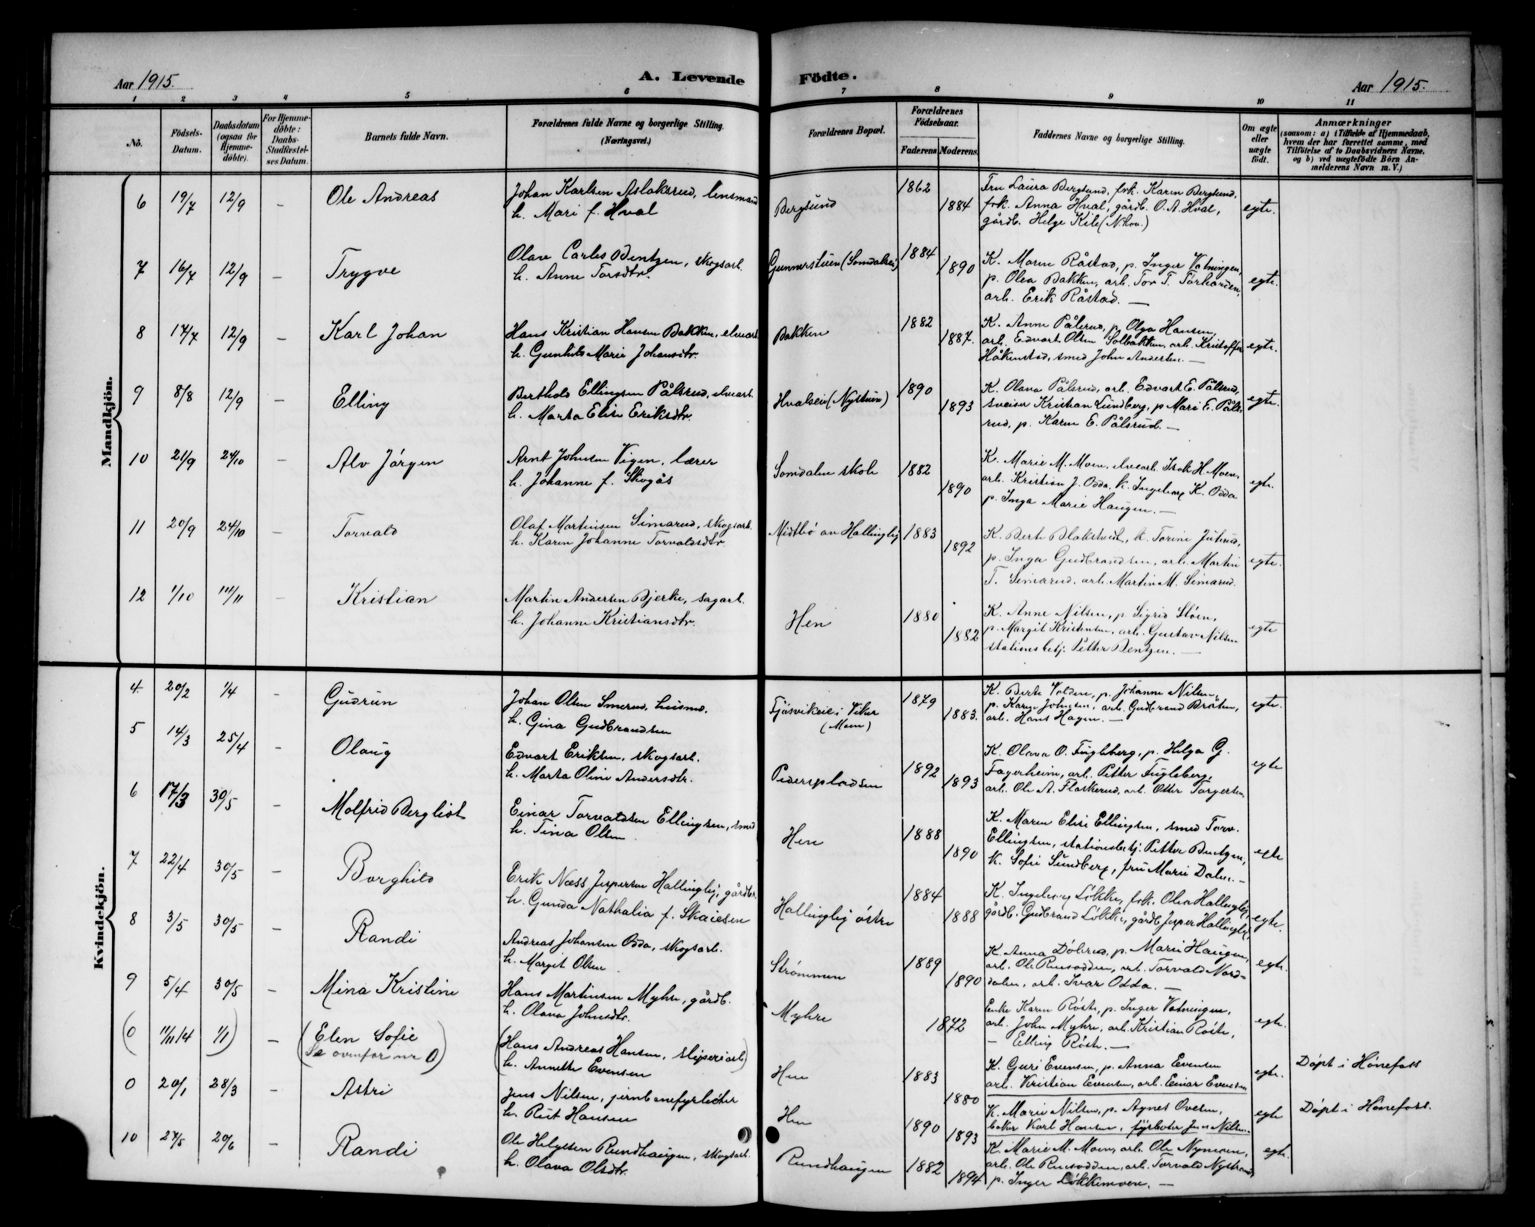 Aar 1915.
A. Levende Fødte.
Aar 1915.
1 2 3 4 5 6 7 8 9 10 11
No.
Fødsels-Datum.
Daabsdatum (ogsaa for Hjemme-døbte).
For Hjemme-døbte: Daabs-Stadfæstel-ses Datum.
Barnets fulde Navn.
Forældrenes fulde Navne og borgerlige Stilling. (Næringsvei.)
Forældrenes Bopæl.
Forældrenes Fødselsaar.
Faderens. Moderens.
Faddernes Navne og borgerlige Stilling.
Om ægte eller uægte født.
Anmærkninger
(saasom: a) i Tilfælde af Hjemmedaab, hvem der har forrettet samme, med Tilføielse af to Daabsvidners Navne, og b) ved uægtefødte Børn An-melderens Navn m. V.)
Mandkjøn.
6 19/7 12/9 – Ole Andreas
Johan Karlsen Aslaksrud, lensmand
h. Mari f. Hval
Bergsund 1862 1884
Fru Laura Berglund, frk. Karen Berglund,
frk. Anna Hval, gårdb. O. A. Hval,
gårdb. Helge Kile (Nkou.)
egte.
7 16/7 12/9 – Trygve
Olav Carlos Bentzen, skogsarb.
h. Anne Torsdtr.
Gunnersteien (Somdalen) 1884 1890
K. Maren Råstad, p. Inger Vatningen,
p. Olea Bakken, arb. Tor T. Torhaugen,
arb. Erik Råstad. –
egte.
8 17/7 12/9 – Karl Johan
Hans Kristian Hansen Bakken, elvearb.
h. Gunhild Marie Johansdtr.
Bakken 1882 1887.
K. Anne Pålsrud, p. Olga Hansen,
arb. Edvart Olsen Solbakken, arb. Kristoffer
Håkenstad, smed John Andersen –
egte.
9 8/8 12/9 – Elling
Berthold Ellingsen Pålsrud, elvearb.
h. Marta Elise Eriksdtr.
Hvalseie (Nystuen) 1890 1893
K. Olava Pålsrud, arb. Edvart E. Pålsrud,
sveiser Kristian Lundberg, p Mari E. Påls-
rud, p. Karen E. Pålsrud. –
egte.
10 21/9 24/10 – Alv Jørgen
Arnt Johnsen Vigen, lærer
h. Johanne f. Skogås
Somdalen skole 1882 1890
K. Marie M. Moen, elvearb. Isak H. Moen,
arb. Kristian J. Odda, k. Ingeborg K. Odda
p. Inga Marie Haugen. –
egte.
11 20/9 24/10 – Torvald
Olaf Martinsen Simarud, skogsarb.
h. Karen Johanne Torvaldsdtr.
Midtbø av Hallingby 1883 1892
p. Inga Gudbrandsen, arb. Martin
T. Simarud, arb. Martin M. Simarud.
egte.
12 1/10 14/11 – Kristian
Martin Andersen Bjerke, sagarb.
h. Johanne Kristiansdtr.
Hen 1880 1882
K. Anne Nilsen, p. Sigrid Sløen,
p. Margit Kristensen, arb. Gustav Nilsen
stationsbetj. Petter Bentzen. –
egte
Kvindekjøn.
4 20/2 1/4 – Gudrun
Johan Olsen Smerud, husmd.
h. Gina Gudbrandsen
Tjåsvikeie i Viker
(Moen) 1879 1883.
K. Berte Volden, p. Johanne Nilsen,
p. Karen Johnsen, arb. Gudbrand Bråten,
arb. Hans Hagen. –
egte.
5 14/3 25/4 – Olaug
Edvart Eriksen, skogsarb.
h. Marta Oline Andersdtr.
Pederspladsen 1892 1893
K. Olava O. Fugleberg, p. Helga G.
Fagerheim, arb. Petter Fugleberg,
arb. Ole A. Flaskerud, arb. Otter Torgersen
egte
6 17/3 30/5 – Molfrid Bergliot
Einar Torvaldsen Ellingsen, smed
h. Tina Olsen
Hen 1888 1890
K. Maren Elise Ellingsen, smed Torv.
Ellingsen, stationsbetj. Petter Bentzen,
K. Sofie Sundberg, fru Marie Dalen. –
egte
7 22/4 30/5 – Borghild
Erik Næss Jespersen Hallingby, gårdbr.
h. Gunda Nathalia f. Skaiesen
Hallingby østre 1884 1888
K. Ingeborg Løkke, frk. Olea Hallingby,
gårdb. Gudbrand Løkke, gårdb. Jesper Hallingby,
egte.
8 3/5 30/5 – Randi
Andreas Johansen Odda, skogsarb.
h. Margit Olsen
Strømmen 1889 1890
K. Anna Dølerud, p. Marie Haugen,
arb. Ole Ruensodden, arb. Torvald Nord-
dalen, arb. Ivar Odda. –
egte.
9 5/4 30/5 – Mina Kristine
Hans Martinsen Myhre, gårdb.
h. Olava Johnsdtr.
Myhre 1872
Enke Karen Røste, p. Inger Vatningen,
arb. John Myhre, arb. Kristian Røste,
– Elling Røste. –
egte.
(0 11/11 14 1/1) – (Elen Sofie
Se ovenfor nr 0)
(Hans Andreas Hansen, sliperiarb.)
h. Annette Evensen
Hen 1883 1880
K. Guri Evensen, p. Anna Evensen
arb. Kristian Evensen, arb. Einar Evensen
egte. Døpt i Hønefoss
0 20/1 28/3 – Astri
Jens Nilsen, jernbanefyrbøter
h. Rut Hansen
Hen 1890 1893
K. Marie Nilsen, p. Agnes Oversen,
baker Karl Hansen, fyrbøter Jens Nilsen.
egte Døpt i Hønefoss.
10 24/5 20/6 – Randi
Ole Helgesen Rundhaugen, skogsarb.
h. Olava Olsdtr.
Rundhaugen 1882 1894
K. Marie M. Moen, arb. Ole Nymoen,
arb. Ole Ruensodden, arb. Torvald Nystrand,
p. Inger Løkkemoen. –
egte.